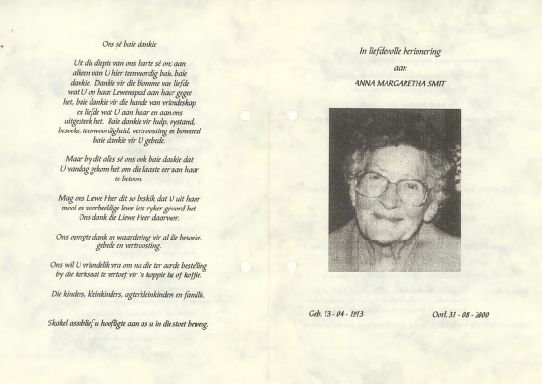 Ons sê baie dankie
Uit die diepte van ons harte sê ons aan
alleen van U hier teenwoordig baie, baie
dankie. Dankie vir die blomme van liefde
wat U op haar Lewenspad aan haar gegee
het, baie dankie vir die hande van vriendeskap
en liefde wat U aan haar en aan ons
uitgesteek het. Baie dankie vir hulp, bystand,
besoeke, teenwoordigheid, vertroosting en bowenal
baie dankie vir U gebede.
Maar by dit alles sê ons ook baie dankie dat
U vandag gekom het om die laaste eer aan haar
te betoon.
Mag ons Liewe Heer dit so beskik dat U uit haar
mooi en voorbeeldige lewe iets ryker geword het
Ons dank die Liewe Heer daarvoor.
Ons opregte dank en waardering vir al die besoeke,
gebede en vertroosting.
Ons wil U vriendelik vra om na die ter aarde bestelling
by die kerksaal te vertoef vir 'n koppie tee of koffie.
Die kinders, kleinkinders, agterkleinkinders en familie.
Skakel asseblief u hoofligte aan as u in die stoet beweeg.
In liefdevolle herinnering
aan
ANNA MARGARETHA SMIT
Geb. 13 - 04 - 1913
Oorl. 31 - 08 - 2000